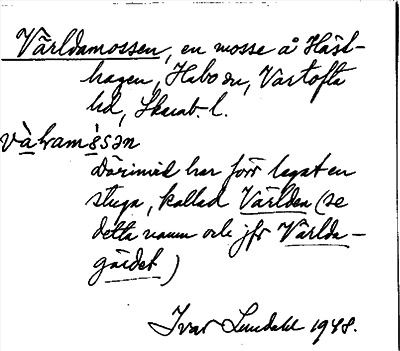 Världamossen, en mosse å Häst-
hagen, Habo sn, Vartofta
hd, Skarab. l.
và̲ramò̲sən
Därinvid har förr legat en
stuga, kallad Världen (se
detta namn och jfr Världa-
gärdet)
Ivar Lundahl 1948.